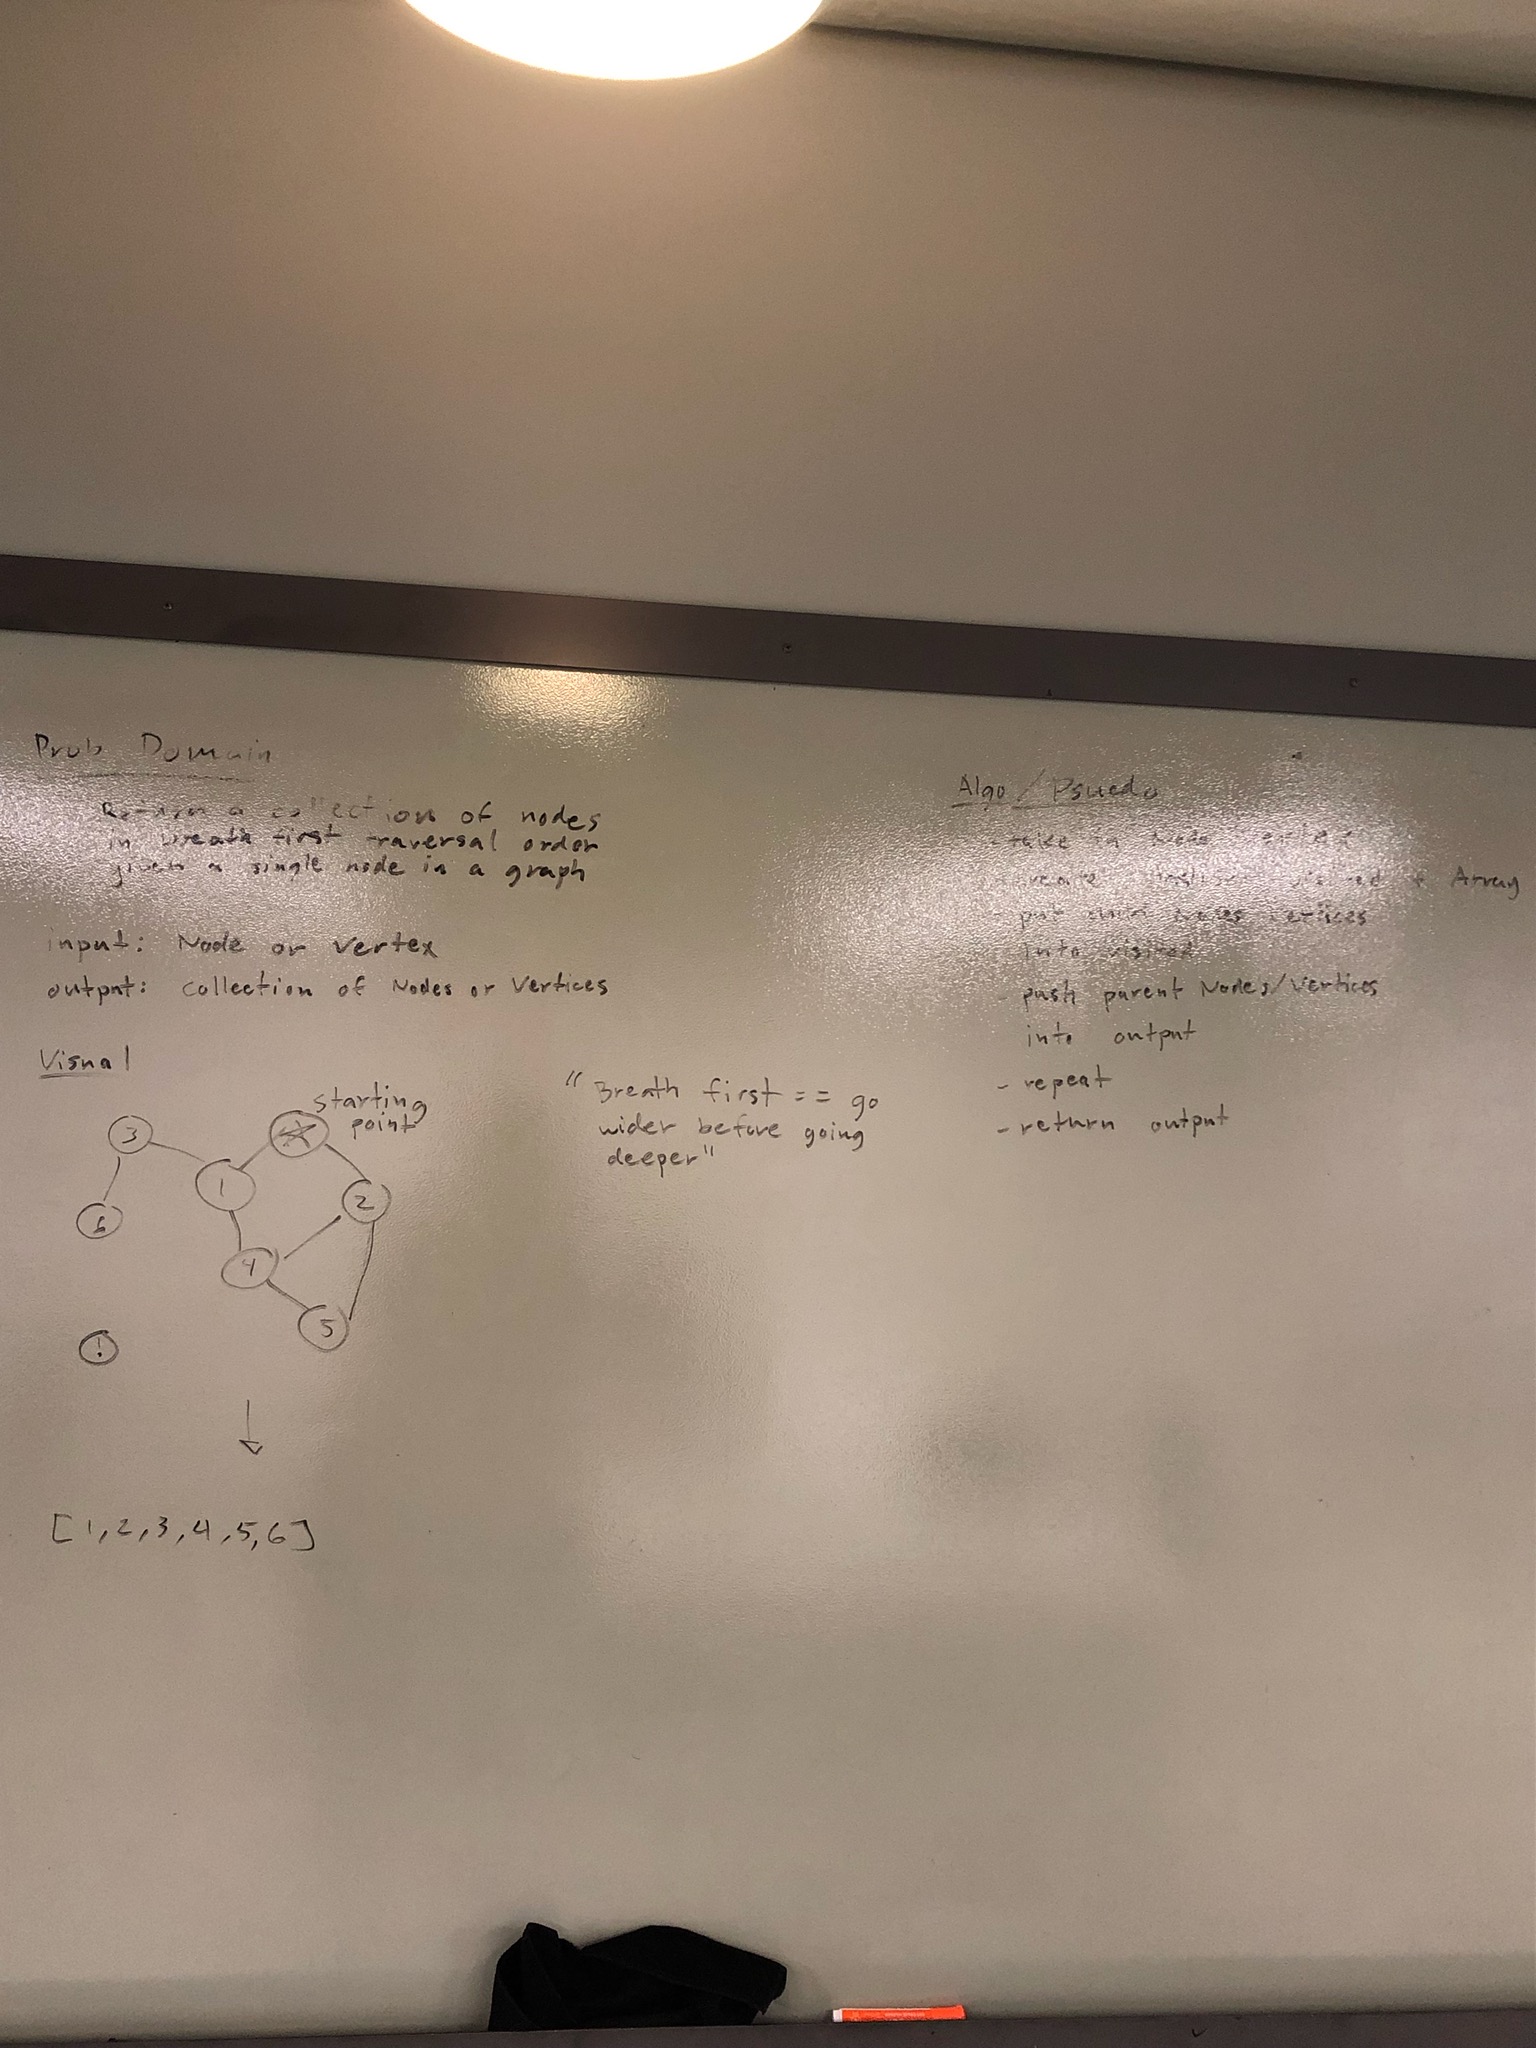 Prob Domain
Return a collection of nodes
in breath first traversal order
given a single node in a graph
input: Node or Vertex
output: collection of Nodes or Vertices
Visual
starting
point
3
1
2
6
4
5
!
[1,2,3,4,5,6]
"Breath first == go
wider before going
deeper"
Algo / Psuedo
- take in node
create visited + Array
- put vertices
into visited
- push parent Nodes/Vertices
into output
- repeat
- return output